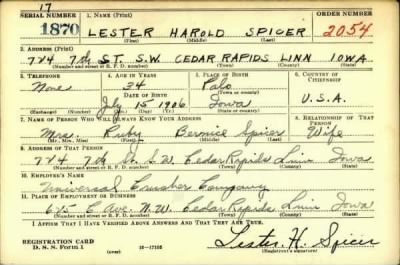 17
SERIAL NUMBER 1. NAME (Print) ORDER NUMBER
1870 LESTER HAROLD SPICER 2054
(First) (Middle) (Last)
2. ADDRESS (Print)
724 7th ST. S.W. CEDAR RAPIDS LINN IOWA
(Number and street or R. F. D. number) (Town) (County) (State)
3. TELEPHONE 4. AGE IN YEARS 5. PLACE OF BIRTH 6. COUNTRY OF CITIZENSHIP
None 34 Palo
DATE OF BIRTH
July 15 1906 Iowa U.S.A.
(Exchange) (Number) (Mo.) (Day) (Yr.) (State or country)
7. NAME OF PERSON WHO WILL ALWAYS KNOW YOUR ADDRESS 8. RELATIONSHIP OF THAT PERSON
Mrs. Ruby Bernice Spicer Wife
(Mr., Mrs., Miss) (First) (Middle) (Last)
9. ADDRESS OF THAT PERSON
724 7th St. S.W. Cedar Rapids Linn Iowa
(Number and street or R. F. D. number) (Town) (County) (State)
10. EMPLOYER'S NAME
Universal Crusher Company
11. PLACE OF EMPLOYMENT OR BUSINESS
625 C Ave. N.W. Cedar Rapids Linn Iowa
(Number and street or R. F. D. number) (Town) (County) (State)
I AFFIRM THAT I HAVE VERIFIED ABOVE ANSWERS AND THAT THEY ARE TRUE.
REGISTRATION CARD
D. S. S. Form 1 (over) 16—17105 Lester H. Spicer
(Registrant's signature)